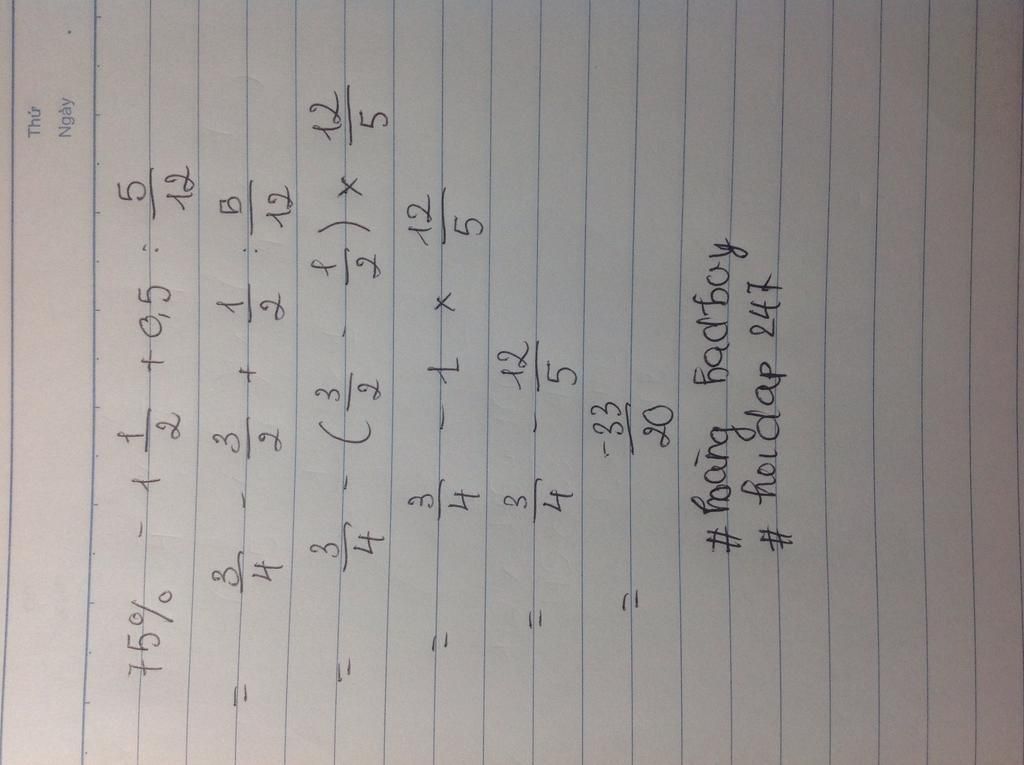 Thứ
Ngày
75% - 1 1/2 + 0,5 : 5/12
= 3/4 - 3/2 + 1/2 : 5/12
= 3/4 - (3/2 - 1/2) x 12/5
= 3/4 - 1 x 12/5
= 3/4 - 12/5
= -33/20
# hoàng badboy
# hoidap 247